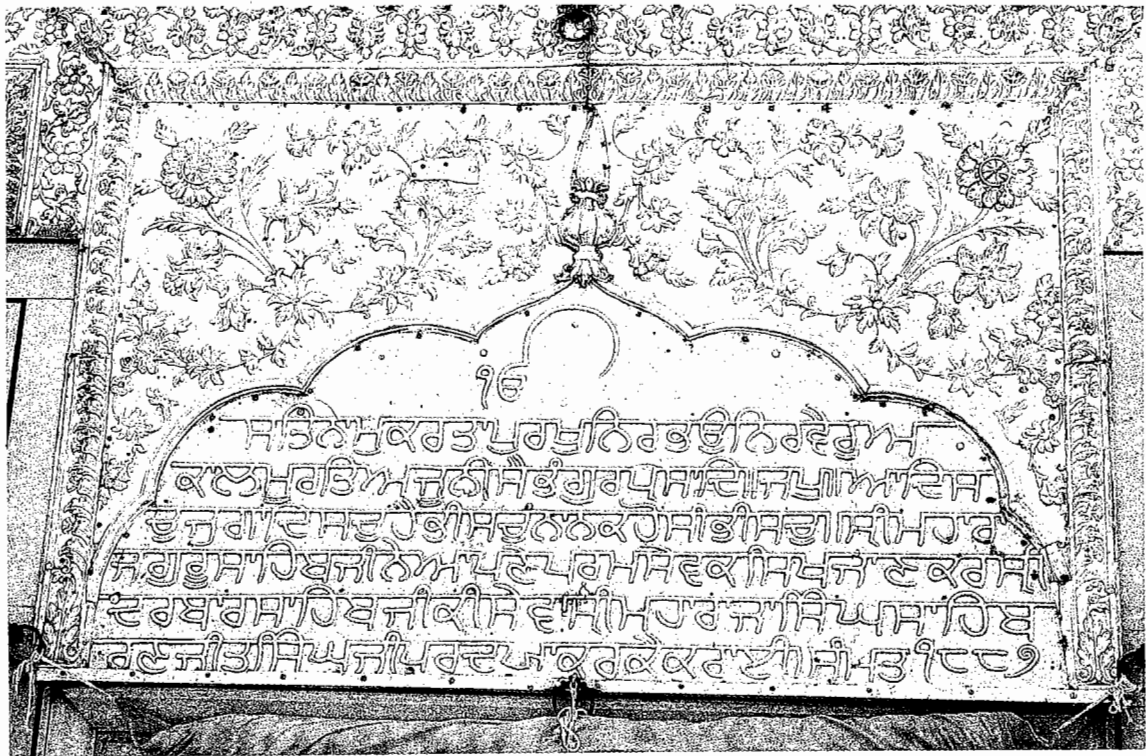 ੴ
ਸਤਿਨਾਮੁ ਕਰਤਾ ਪੁਰਖੁ ਨਿਰਭਉ ਨਿਰਵੈਰੁ ਅ
ਕਾਲ ਮੂਰਤਿ ਅਜੂਨੀ ਸੈਭੰ ਗੁਰਪ੍ਰਸਾਦਿ ॥ ਜਪੁ ॥ ਆਦਿ ਸ
ਚੁ ਜੁਗਾਦਿ ਸਚੁ ਹੈ ਭੀ ਸਚੁ ਨਾਨਕ ਹੋਸੀ ਭੀ ਸਚੁ ॥ ਸ੍ਰੀ ਮਹਾਰਾ
ਜ ਗੁਰੂ ਸਾਹਿਬ ਜੀ ਨੇ ਅਪਣੇ ਪਰਮ ਸੇਵਕ ਸਿਖ ਜਾਣ ਕਰ ਸ੍ਰੀ
ਦਰਬਾਰ ਸਾਹਿਬ ਜੀ ਕੀ ਸੇਵਾ ਸ੍ਰੀ ਮਹਾਰਾਜਾ ਸਿੰਘ ਸਾਹਿਬ
ਰਣਜੀਤ ਸਿੰਘ ਜੀ ਪਰ ਦਯਾ ਕਰਕੇ ਕਰਾਈ ॥ ਸੰਮਤ ੧੮੮੭